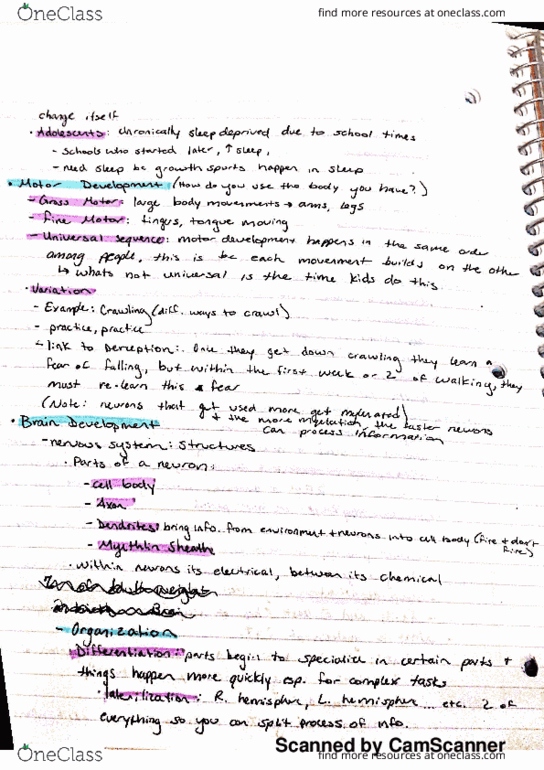 OneClass
find more resources at oneclass.com
change itself
· Adolescents: chronically sleep deprived due to school times
- Schools who started later, ↑ sleep,
- need sleep bc growth spurts happen in sleep
• Motor Development (How do you use the body you have?)
- Gross Motor: large body movements → arms, legs
- Fine Motor: fingers, tongue moving
- Universal sequence: motor development happens in the same order
among people, this is bc each movement builds on the other
↳ whats not universal is the time kids do this
· Variation
- Example: Crawling (diff. ways to crawl)
- practice, practice
- link to perception: Once they get down crawling they learn a
fear of falling, but within the first week or 2 of walking, they
must re-learn this fear
(Note: neurons that get used more get
+ the more the faster neurons
can process information
• Brain Development
- nervous system: Structures
· Parts of a neuron:
- cell body
- Axon
- Dendrites: bring info. from environment + neurons into cell body (fire + don't
fire)
- Sheathe
· within neurons its electrical, between its chemical
- Organization
Differentiation: parts begin to specialize in certain parts +
things happen more quickly esp. for complex tasks
· R. hemisphere, L. hemisphere ... etc. 2 of
everything so you can split process of info.
Scanned by CamScanner
OneClass
find more resources at oneclass.com